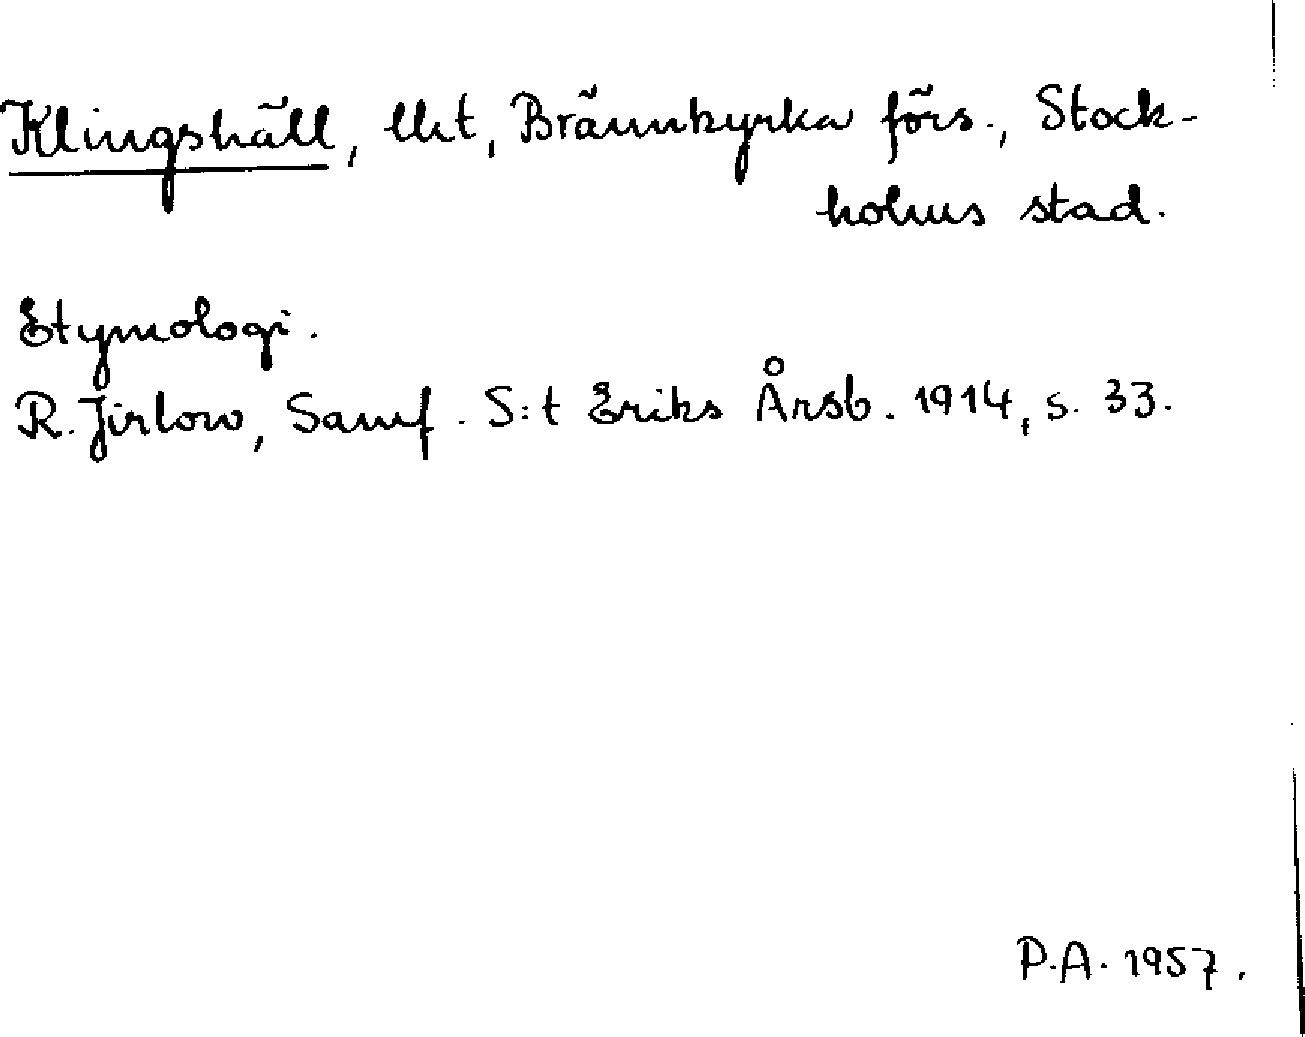 Klingshäll, lht, Brännkyrka förs., Stock-
holms stad.
Etymologi.
R. Jirlow, Samf. S:t Eriks Årsb. 1914, s. 33.
P.A. 1957.